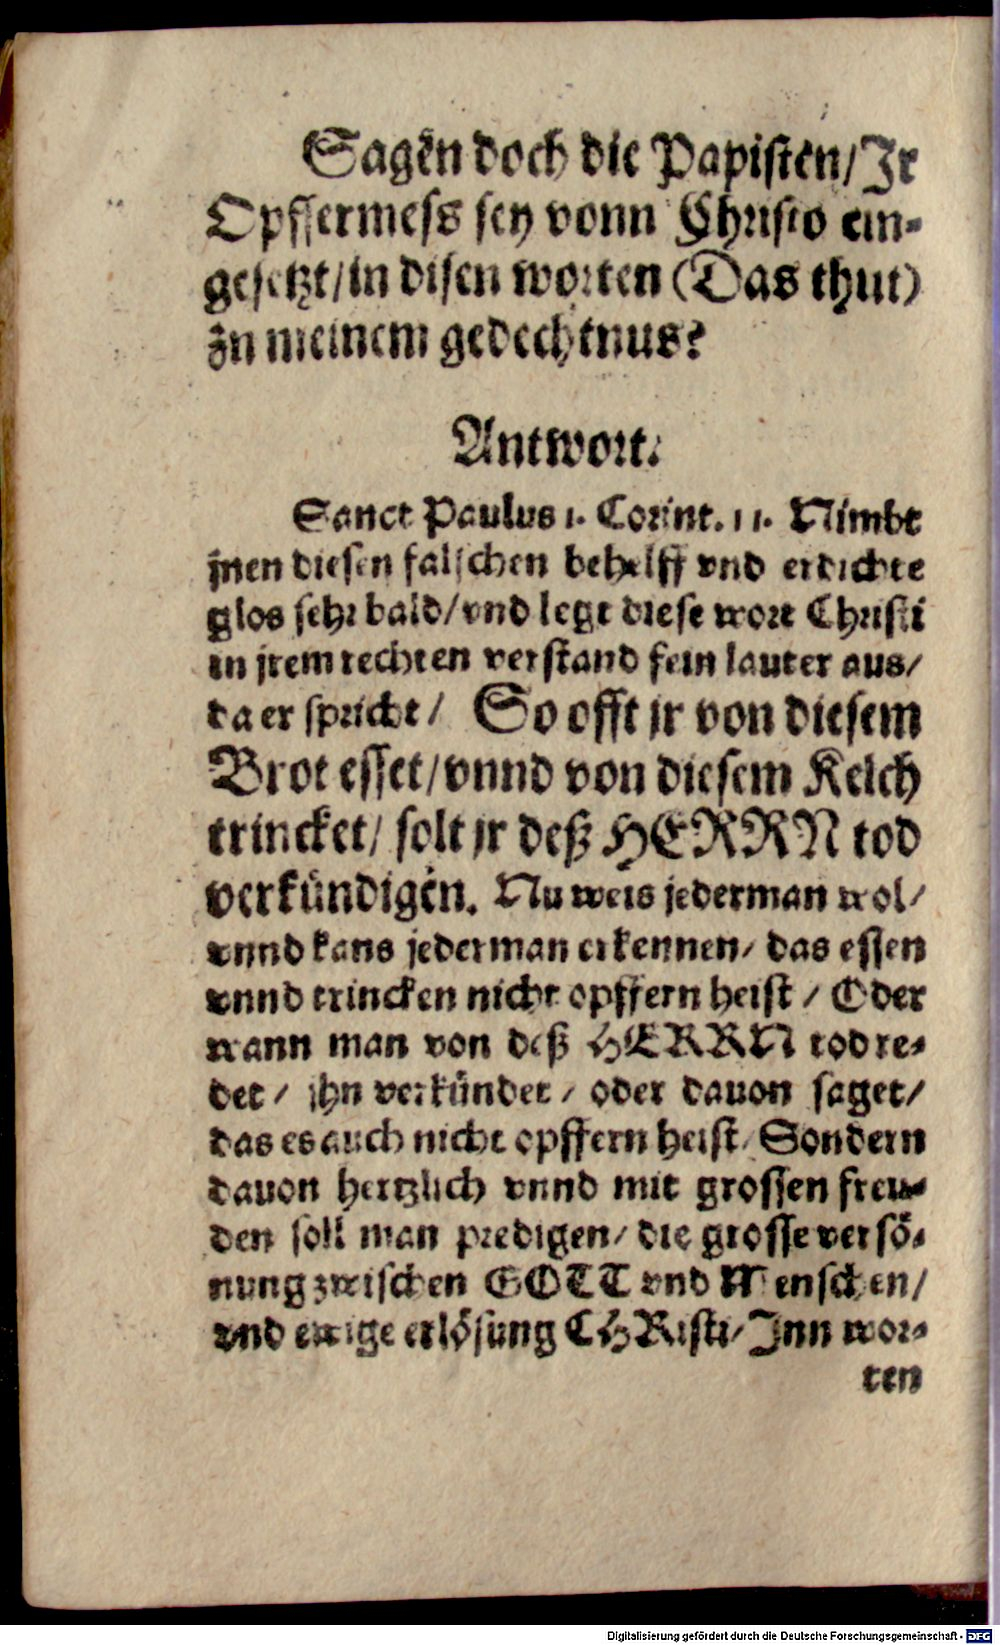 Sagen doch die Papisten/ Jr
Opffermess sey vonn Christo ein-
gesetzt/ in disen worten (Das thut)
zu meinem gedechtnus?
Antwort.
Sanct Paulus 1. Corint. 11. Nimbt
jnen diesen falschen behelff vnd erdichte
glos sehr bald/ vnd legt diese wort Christi
in jrem rechten verstand fein lauter aus/
da er spricht/ So offt jr von diesem
Brot esset/ vnnd von diesem Kelch
trincket/ solt jr deß HERRN tod
verkündigen. Nu weis jederman wol/
vnnd kans jederman erkennen/ das essen
vnnd trincken nicht opffern heist/ Oder
wann man von deß HERRN tod re-
det/ jhn verkündet/ oder dauon saget/
das es auch nicht opffern heist/ Sondern
dauon hertzlich vnnd mit grossen freu-
den soll man predigen/ die grosse versö-
nung zwischen GOTT vnd Menschen/
vnd ewige erlösung CHRisti/ Jnn wor-
ten
Digitalisierung gefördert durch die Deutsche Forschungsgemeinschaft - DFG